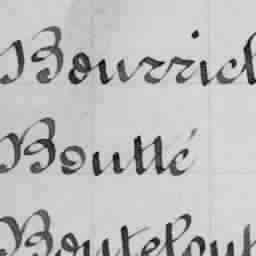 Bourrich
Boutté
Boutelout